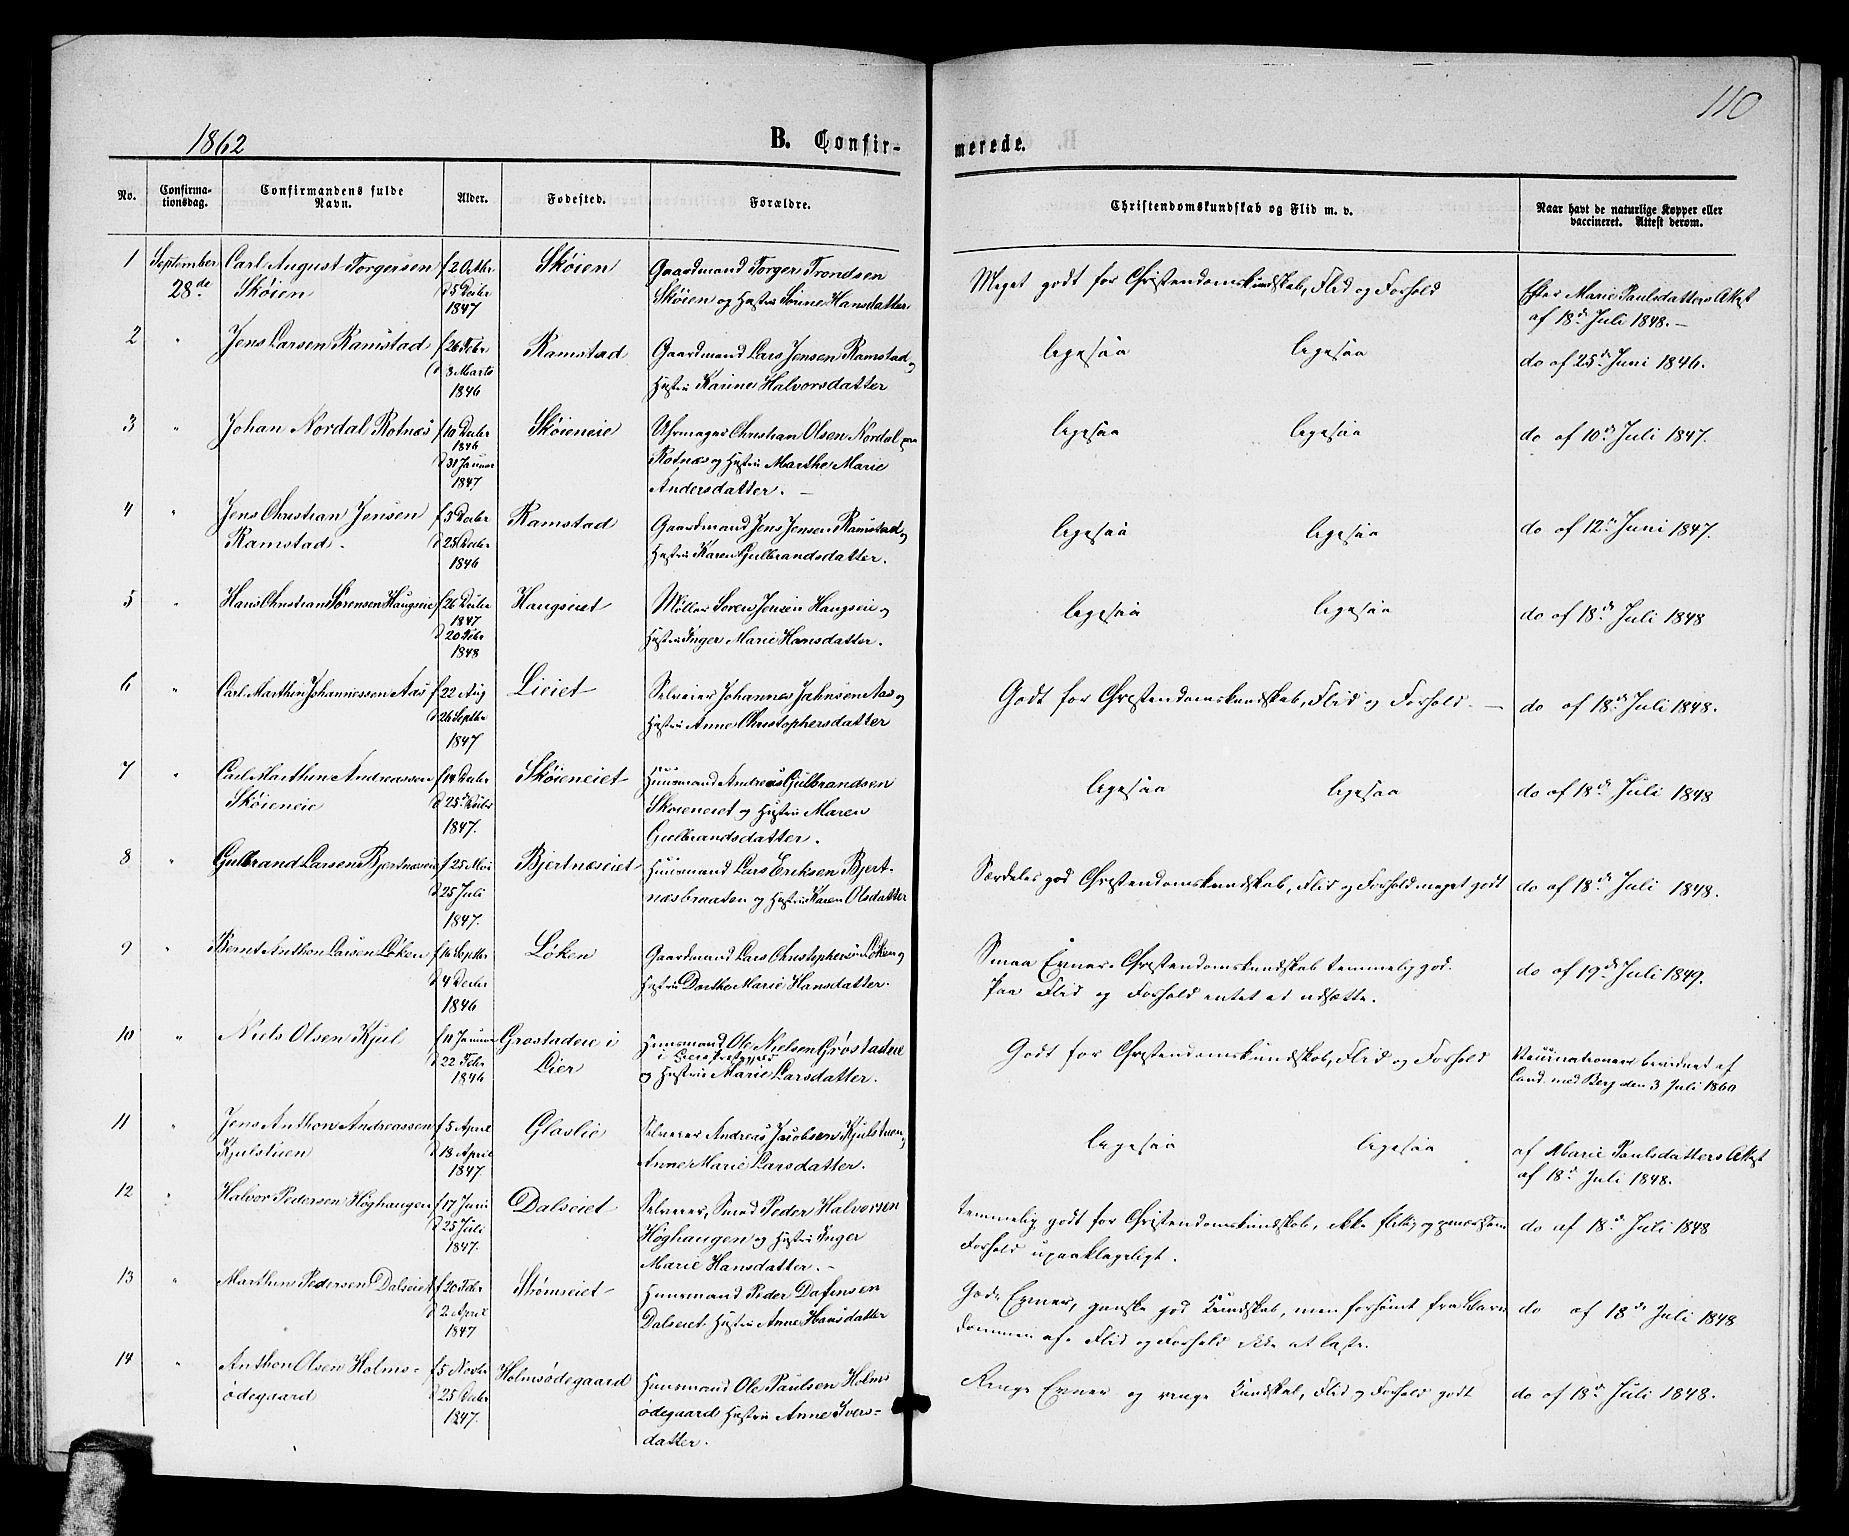 110
1862
B. Confir-
merede.
No.
Confirma-
tionsdag.
Confirmandens fulde
Navn.
Alder.
Fødested.
Forældre.
Christendomskundskab og Flid m. v.
Naar havt de naturlige Kopper eller
vaccineret. Attest derom.
1 September Carl August Torgersen f 2 Octbr Skøien Gaardmand Torger Trondsen
28de Skøien d 5 Decbr Skøien og Hustru Sørine Hansdatter
1847
Meget godt for Christendomskundskab, Flid og Forhold
Efter Marie Paulsdatters Attest
af 18de Juli 1848. –
2 " Jens Larsen Ramstad f 26 Febr Ramstad Gaardmand Lars Jensen Ramstad og
d 8 Marts Hustru Karine Halvorsdatter
1846
ligesaa ligesaa do af 25de Juni 1846.
3 " Johan Nordal Rotnæs f 10 Decbr Skøieneie Uhrmager Christian Olsen Nordal paa
1846 Rotnæs og Hustru Marthe Marie
d 31 Januar Andersdatter. –
1847
ligesaa ligesaa do af 10de Juli 1847.
4 " Jens Christian Jensen f 3 Decbr Ramstad Gaardmand Jens Jensen Ramstad og
Ramstad. d 25 Decbr Hustru Karen Gulbrandsdatter.
1846
ligesaa ligesaa do af 12te Juni 1847.
5 " Hans Christian Sørensen Haugseie f 26 Decbr Haugseiet Møller Søren Jensen Haugseie og
1847 Hustru Inger Marie Hansdatter.
d 20 Febr
1848
ligesaa ligesaa do af 18de Juli 1848
6 " Carl Marthin Johannessen Aas f 22 Aug Lieiet Selveier Johannes Jahnsen Aas og
d 26 Septbr Hustru Anne Christophersdatter
1847
Godt for Christendomskundskab, Flid og Forhold. – do af 18de Juli 1848.
7 " Carl Marthin Andreassen f 14 Decbr Skøieneiet Huusmand Andreas Gulbrandsen
Skøieneie d 25 Decbr Skøieneiet og Hustru Maren
1847. Gulbrandsdatter.
ligesaa ligesaa do af 18de Juli 1848
8 " Gulbrand Larsen Bjertnæseie f 25 Mai Bjertnæseiet Huusmand Lars Eriksen Bjert-
d 25 Juli næsbraaten og Hustru Karen Olsdatter
1847.
Særdeles god Christendomskundskab, Flid og Forhold meget godt do af 18de Juli 1848.
9 " Bernt Anthon Larsen Løken f 16 Septbr Løken Gaardmand Lars Christophersen Løken og
d 4 Decbr Hustru Dorthe Marie Hansdatter.
1846
Smaa Evner. Christendomskundskab temmelig god.
Paa Flid og Forhold intet at udsætte.
do af 19de Juli 1849.
10 " Niels Olsen Kjul f 11 Januar Grøstadeie i Huusmand Ole Nielsen Grøstadeie
d 22 Febr Lier og Hustru Marie Larsdatter.
1846
Godt for Christendomskundskab, Flid og Forhold
Vaccinationen bevidnet af
Cand. med Berg den 3 Juli 1860
11 " Jens Anthon Andreassen f 5 April Glaslie Selveier Andreas Jacobsen Kjulstuen og
Kjulstuen d 18 April Anne Marie Larsdatter.
1847
ligesaa ligesaa
af Marie Paulsdatters Attest
af 18de Juli 1848.
12 " Halvor Pedersen Høghaugen f 17 Juni Dalseiet Selveier, Smed Peder Halvorsen
d 25 Juli Høghaugen og Hustru Inger
1847. Marie Hansdatter. –
temmelig godt for Christendomskundskab, ikke flittig og opmærksom
Forhold upaaklageligt.
do af 18de Juli 1848
13 " Marthin Pedersen Dalseiet f 20 Febr Strømseiet Huusmand Peder Dafinsen
d 2 April Dalseiet Hustru Anne Hansdatter
1847
Gode Evner, ganske god Kundskab, men forsømt fra Barn
dommen af. Flid og Forhold ikke at laste.
do af 18de Juli 1848
14 " Anthon Olsen Holms- f 5 Novbr Holmsødegaard Huusmand Ole Paulsen Holms
ødegaard d 25 Decbr ødegaard Hustru Anne Ivers-
1847. datter.
Ringe Evner og ringe Kundskab, Flid og Forhold godt do af 18de Juli 1848.